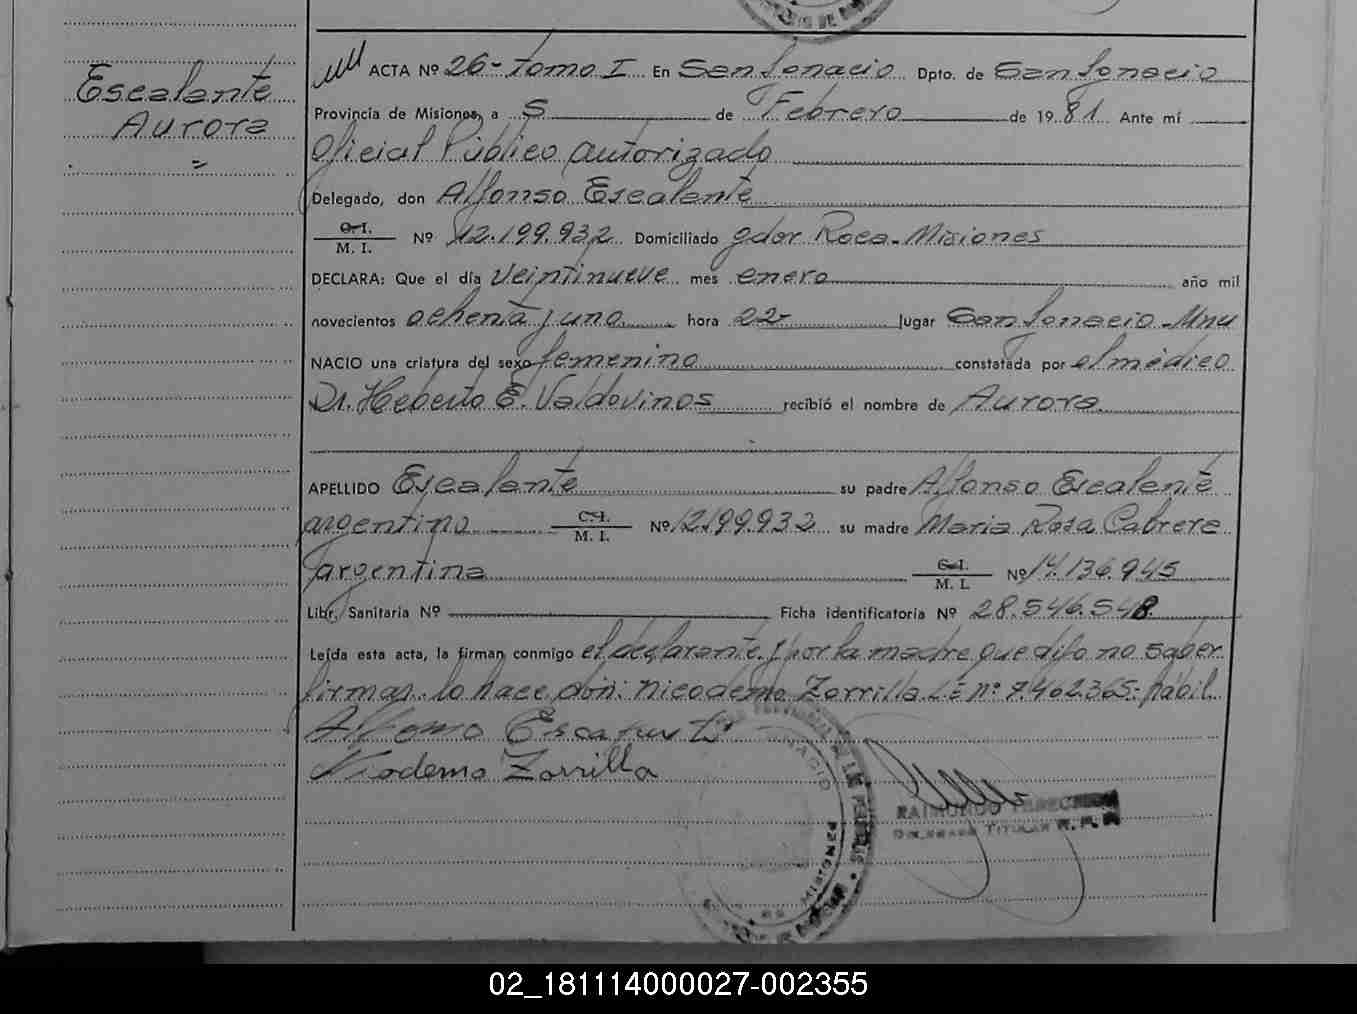 Escalante
Aurora
=
ACTA Nº 26- tomo I En San Ignacio Dpto. de San Ignacio
Provincia de Misiones, a 5 de Febrero de 1981 Ante mí
Oficial Público autorizado
Delegado, don Alfonso Escalante
C.I.
M. I. Nº 12.199.932 Domiciliado gdor Roca-Misiones
DECLARA: Que el día veintinueve mes enero año mil
novecientos ochenta y uno hora 22- lugar San Ignacio-Mnes
NACIO una criatura del sexo femenino constatada por el médico
Dr. Heberto E. Valdovinos recibió el nombre de Aurora
APELLIDO Escalante su padre Alfonso Escalante
argentino C.I. M. I. Nº 12.199.932 su madre Maria Rosa Cabrera
argentina C.I. M. I. Nº 14.136.945
Libr. Sanitaria Nº Ficha identificatoria Nº 28.546.548
Leída esta acta, la firman conmigo el declarante y por la madre que dijo no saber
firmar lo hace don: Nicodemo Zorrilla L E nº 7.462365- hábil
Alfonso Escalante
Nicodemo Zorrilla
RAIMUNDO
DELEGADO TITULAR R. P. P.
02_181114000027-002355